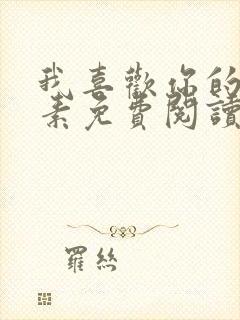 我喜歡你的
素免費閱讀
羅絲